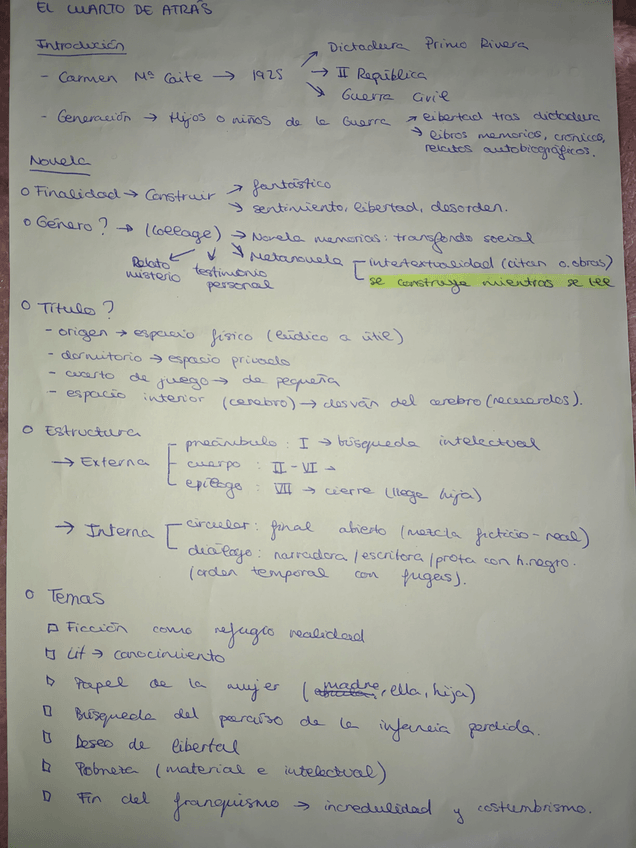 EL CUARTO DE ATRÁS
Introdución
- Carmen Mª Gaite → 1925
→ Dictadura Primo Rivera
→ II República
→ Guerra Civil
- Generación → Hijos o niños de la Guerra
→ libertad tras dictadura
→ libros memorias, crónicas, relatos autobiográficos.
Novela
o Finalidad → Construir
→ fantástico
→ sentimiento, libertad, desorden.
o Género? → (collage) → Novela memorias: transfondo social
→ Metanovela
intertextualidad (citan o. obras)
se construye mientras se lee
Relato misterio
testimonio personal
o Título?
- origen → espacio físico (lúdico a útil)
- dormitorio → espacio privado
- cuarto de juego → de pequeña
- espacio interior (cerebro) → desván del cerebro (recuerdos).
o Estructura
→ Externa
preámbulo: I → búsqueda intelectual
cuerpo: II - VI →
epílogo: VII → cierre (llega hija)
→ Interna
circular: final abierto (mezcla ficticio-real)
diálogo: narradora/escritora/prota con h. negro.
(orden temporal con fugas).
o Temas
Ficción como refugio realidad
Lit → conocimiento
Papel de la mujer (madre, ella, hija)
Búsqueda del paraíso de la infancia perdida.
Deseo de libertad
Pobreza (material e intelectual)
Fin del franquismo → incredulidad y costumbrismo.